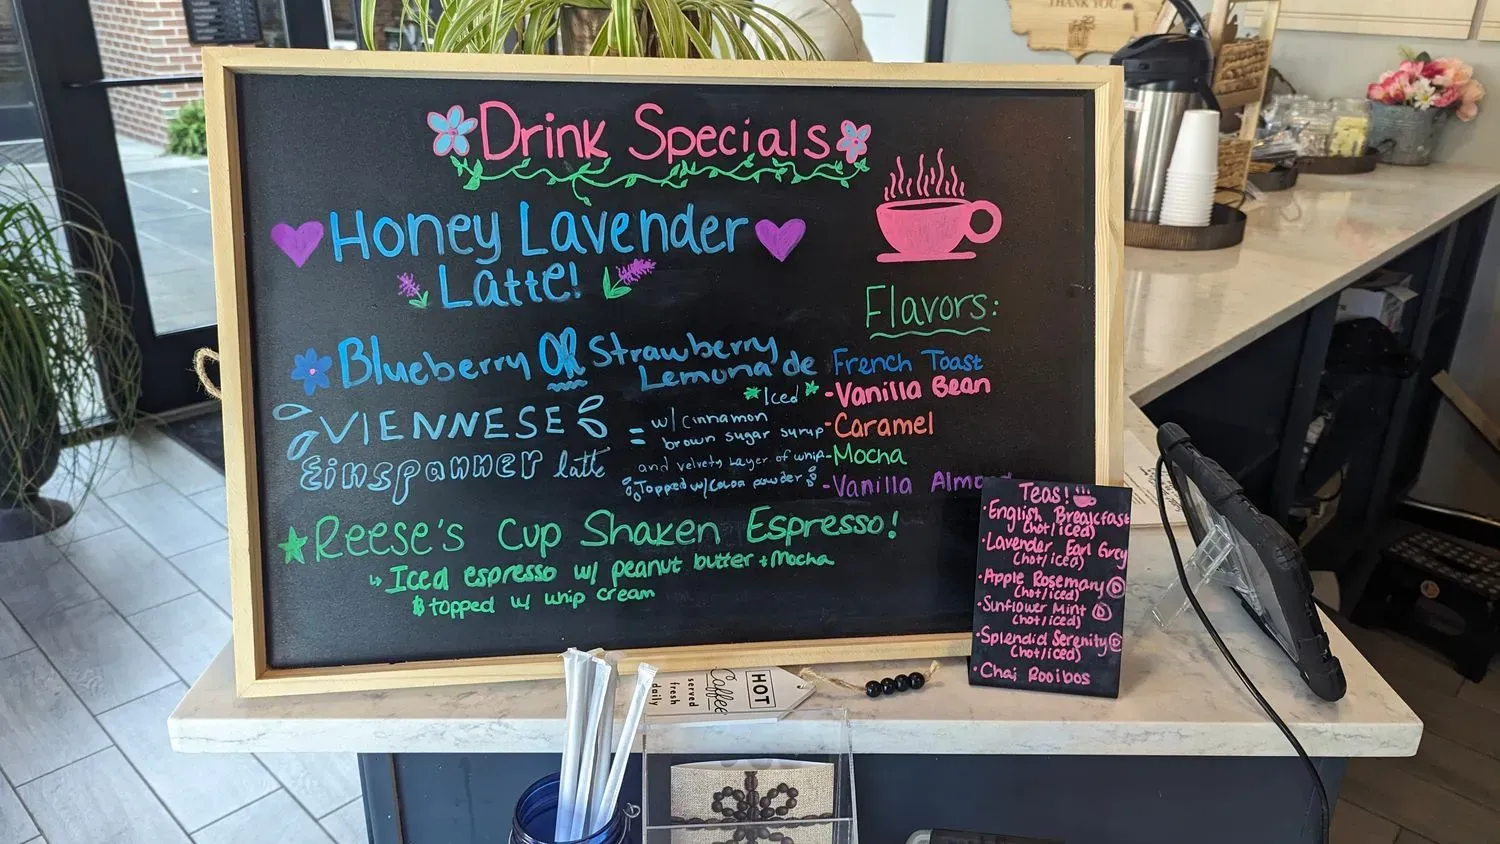 THANK YOU
Drink Specials
Honey Lavender
Latte!
Blueberry OR Strawberry
Lemonade
Iced
VIENNESE
Einspanner latte
= w/ cinnamon
brown sugar syrup
and velvety layer of whip
Topped w/ cocoa powder
Reese's Cup Shaken Espresso!
Iced espresso w/ peanut butter + Mocha
& topped w/ whip cream
Flavors:
French Toast
-Vanilla Bean
-Caramel
-Mocha
-Vanilla Almo
Teas!
·English Breakfast
(hot/iced)
·Lavender Earl Grey
(hot/iced)
·Apple Rosemary D
(hot/iced)
·Sunflower Mint D
(hot/iced)
·Splendid Serenity D
(hot/iced)
·Chai Rooibos
HOT
Coffee
served
fresh
daily